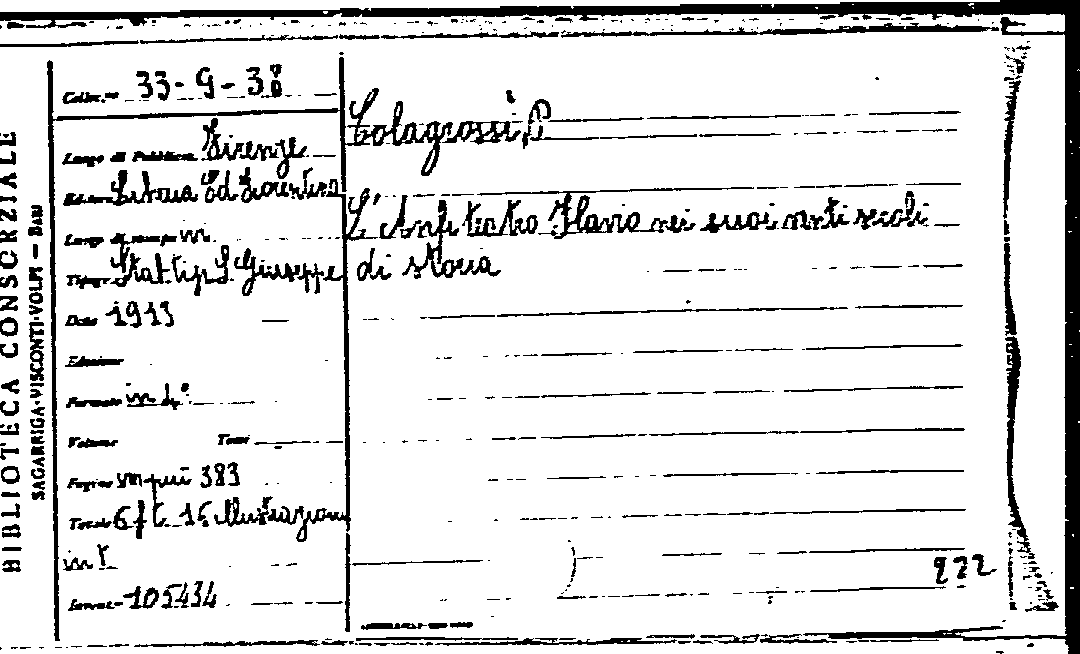 BIBLIOTECA CONSORZIALE
SAGARRIGA-VISCONTI-VOLPI — BARI
Colloc.ne 33-G-38
Luogo di Pubblicaz. Firenze
Editore Libreria Ed Fiorentina
Luogo di stampa ivi
Tipogr. Stab tip S Giuseppe
Data 1913
Edizione
Formato in 4°
Volume Tomi
Pagine 383
Tavole 6 f t. 15 illustrazioni
in t
Invent. 105434
Colagrossi, P
L'Anfiteatro Flavio nei suoi venti secoli
di storia